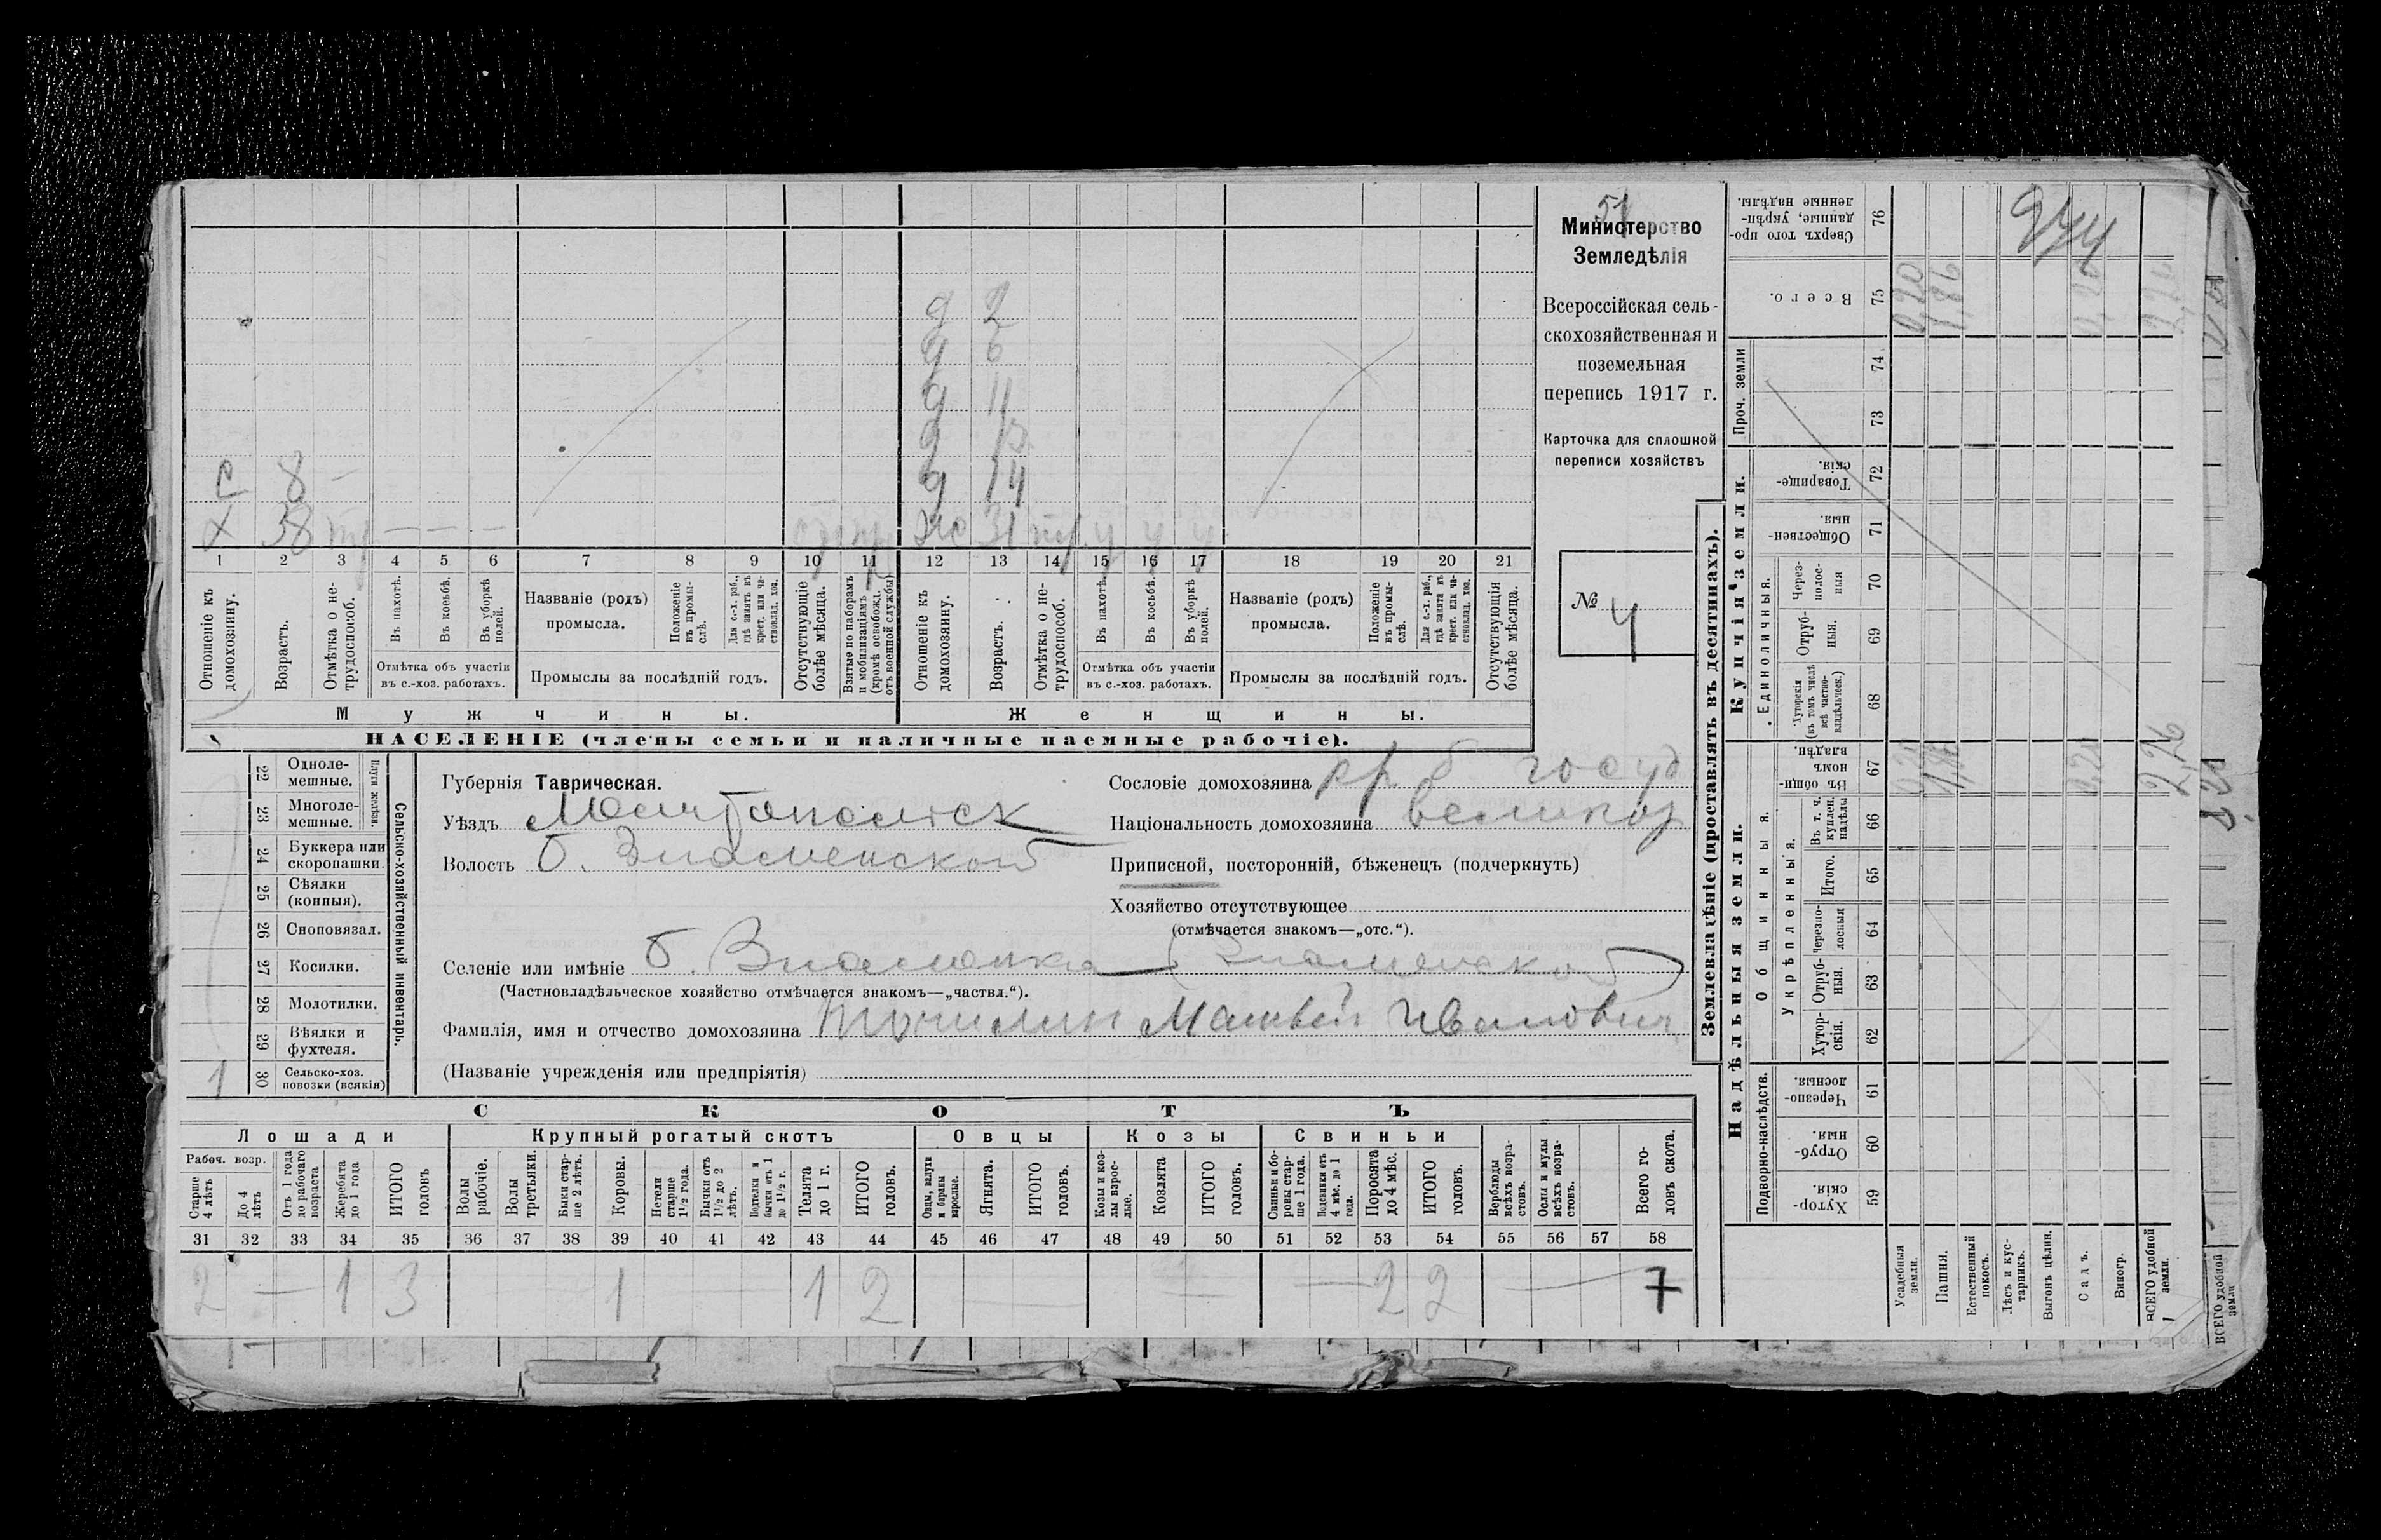 51
Министерство
Земледѣлія
Всероссійская сель-
скохозяйственная и
поземельная
перепись 1917 г.
Карточка для сплошной
переписи хозяйствъ
№ 4
д 2
д 6
д 11
д
С 8 — д 14
Х 38 тр — — — 31 тр. у у у
1 2 3 4 5 6 7 8 9 10 11 12 13 14 15 16 17 18 19 20 21
Отношеніе къ домохозяину.
Возрастъ.
Отмѣтка о не-трудоспособ.
Въ пахотѣ.
Въ косьбѣ.
Въ уборкѣ полей.
Отмѣтка объ участіи
въ с.-хоз. работахъ.
Названіе (родъ)
промысла.
Положеніе въ промы-слѣ.
Для с.-х. раб., гдѣ занятъ въ крест. или ча-стновлад. хоз.
Промыслы за послѣдній годъ.
Отсутствующіе болѣе мѣсяца.
Взятые по наборамъ и мобилизаціямъ (кромѣ освобожд. отъ военной службы)
Отношеніе къ домохозяину.
Возрастъ.
Отмѣтка о не-трудоспособ.
Въ пахотѣ.
Въ косьбѣ.
Въ уборкѣ полей.
Отмѣтка объ участіи
въ с.-хоз. работахъ.
Названіе (родъ)
промысла.
Положеніе въ промы-слѣ.
Для с.-х. раб., гдѣ занята въ крест. или ча-стновлад. хоз.
Промыслы за послѣдній годъ.
Отсутствующія болѣе мѣсяца.
Мужчины. Женщины.
НАСЕЛЕНІЕ (члены семьи и наличные наемные рабочіе).
Сельско-хозяйственный инвентарь.
Плуги желѣзн.
22 Одноле-мешные.
23 Многоле-мешные.
24 Буккера или скоропашки.
25 Сѣялки (конныя).
26 Сноповязал.
27 Косилки.
28 Молотилки.
29 Вѣялки и фухтеля.
1 30 Сельско-хоз. повозки (всякія)
Губернія Таврическая.
Уѣздъ Мелитопольск
Волость Б. Знаменской
Сословіе домохозяина кр б госуд
Національность домохозяина великор
Приписной, посторонній, бѣженецъ (подчеркнуть)
Хозяйство отсутствующее
(отмѣчается знакомъ—„отс.“).
Селеніе или имѣніе Б. Знаменка (Знаменской)
(Частновладѣльческое хозяйство отмѣчается знакомъ—„частвл.“).
Фамилія, имя и отчество домохозяина Матвей Иванович
(Названіе учрежденія или предпріятія)
СКОТЪ
Лошади Крупный рогатый скотъ Овцы Козы Свиньи
Рабоч. возр.
Старше 4 лѣтъ
До 4 лѣтъ
Отъ 1 года до рабочаго возраста
Жеребята до 1 года
ИТОГО головъ
Волы рабочіе.
Волы третьяки.
Быки стар-ше 2 лѣтъ.
Коровы.
Нетели старше 1½ года.
Бычки отъ 1½ до 2 лѣтъ.
Подтелки и бычки отъ 1 до 1½ г.
Телята до 1 г.
ИТОГО головъ.
Овцы, валухи и бараны взрослые.
Ягнята.
ИТОГО головъ.
Козы и коз-лы взрос-лые.
Козлята
ИТОГО головъ.
Свиньи и бо-ровы стар-ше 1 года.
Подсвинки отъ 4 мѣс. до 1 года.
Поросята до 4 мѣс.
ИТОГО головъ.
Верблюды всѣхъ возра-стовъ.
Ослы и мулы всѣхъ возра-стовъ.
Всего го-ловъ скота.
31 32 33 34 35 36 37 38 39 40 41 42 43 44 45 46 47 48 49 50 51 52 53 54 55 56 57 58
2 — 1 3 1 1 2 — — — 2 2 — 7
Землевладѣніе (проставлять въ десятинахъ).
Надѣльныя земли.
Купчія земли.
Проч. земли
Подворно-наслѣдств.
Общинныя.
Укрѣпленныя.
Единоличныя.
Хутор-скія. 59
Отруб-ныя. 60
Черезпо-лосныя. 61
Хутор-скія. 62
Отруб-ныя. 63
Черезпо-лосныя 64
Итого. 65
Въ т. ч. куплен. надѣлы 66
Въ общи-номъ владѣн. 67
Хуторскія (въ томъ числѣ всѣ частно-владѣльческ.) 68
Отруб-ныя. 69
Через-полос-ныя 70
Обществен-ныя. 71
Товарище-скія. 72
73
74
Всего. 75
Сверхъ того про-данные, укрѣп-ленные надѣлы. 76
Усадебныя земли.
Пашня.
Естественный покосъ.
Лѣсъ и кус-тарникъ.
Выгонъ цѣлин.
Садъ.
Виногр.
ВСЕГО удобной земли.
ВСЕГО удобной земли
974
0,20
1,86
2,26